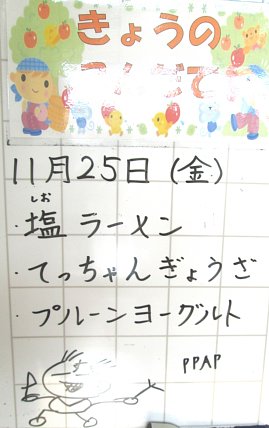 きょうの
11月25日(金)
しお
・塩ラーメン
・てっちゃんぎょうざ
・プルーンヨーグルト
PPAP